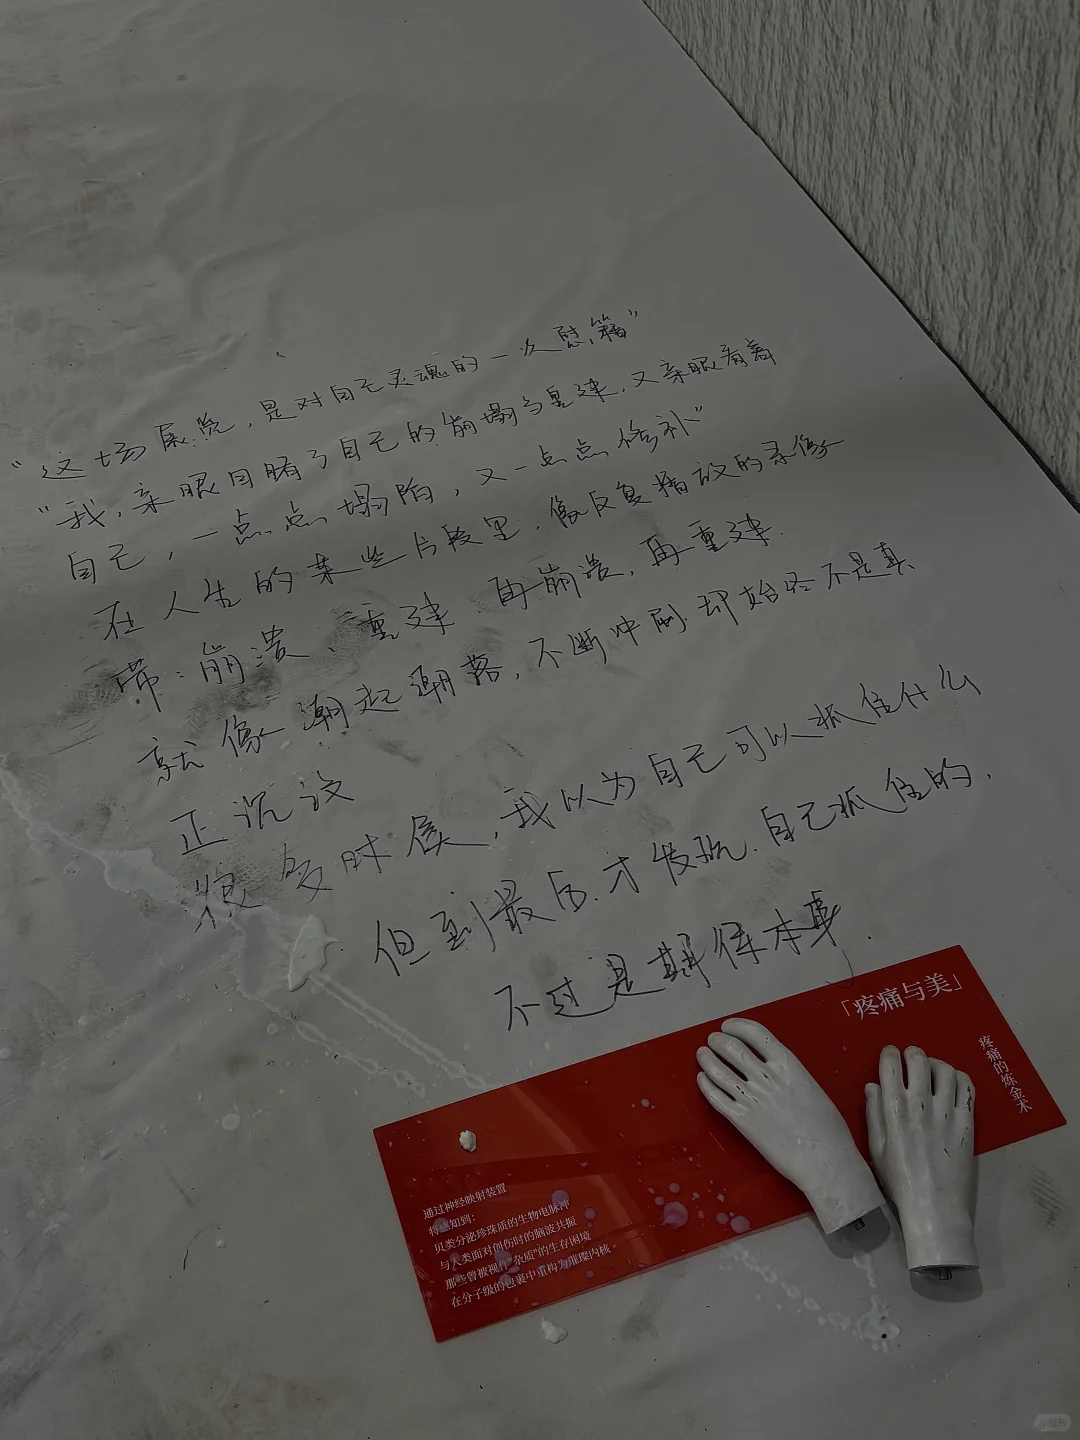 “这场展览，是对自己灵魂的一次慰籍”
“我，亲眼目睹了自己的崩塌与重建，又亲眼看着
自己，一点点塌陷，又一点点修补”
在人生的某些片段里，像反复播放的录像
带：崩溃、重建、再崩溃，再重建.
就像潮起潮落，不断冲刷却始终不是真
正沉没
很多时候，我以为自己可以抓住什么
但到最后.才发现.自己抓住的.
不过是
本身.
「疼痛与美」
疼痛的炼金术
通过神经映射装置
将感知到：
贝类分泌珍珠质的生物电脉冲
与人类面对创伤时的脑波共振
那些曾被视作"杂质"的生存困境
在分子级的包裹中重构为璀璨内核
小红书